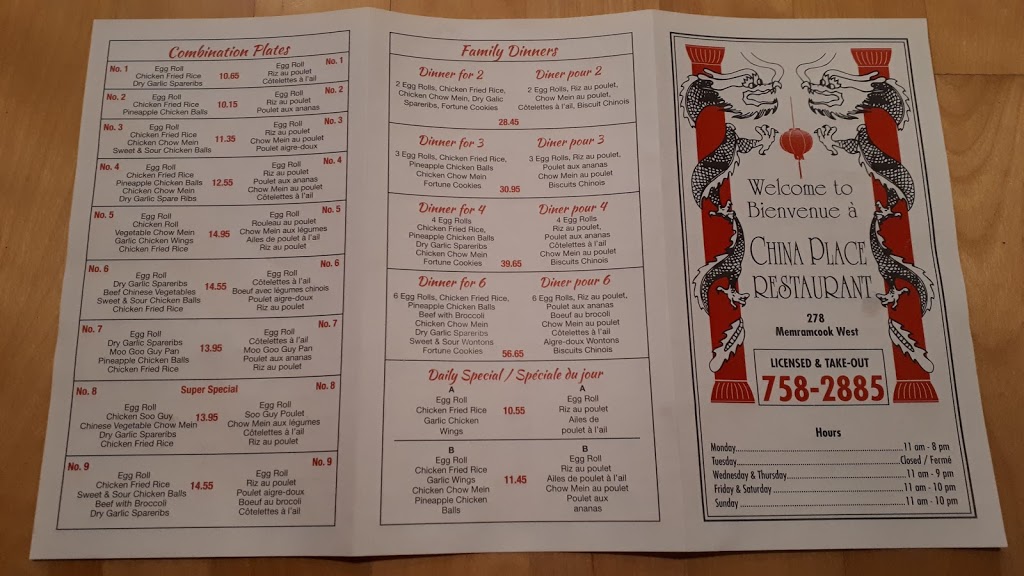 Combination Plates
No. 1
Egg Roll
Chicken Fried Rice
Dry Garlic Spareribs
10.65
Egg Roll
Riz au poulet
Côtelettes à l'ail
No. 1
No. 2
Egg Roll
Chicken Fried Rice
Pineapple Chicken Balls
10.15
Egg Roll
Riz au poulet
Poulet aux ananas
No. 2
No. 3
Egg Roll
Chicken Fried Rice
Chicken Chow Mein
Sweet & Sour Chicken Balls
11.35
Egg Roll
Riz au poulet
Chow Mein au poulet
Poulet aigre-doux
No. 3
No. 4
Egg Roll
Chicken Fried Rice
Pineapple Chicken Balls
Chicken Chow Mein
Dry Garlic Spare Ribs
12.55
Egg Roll
Riz au poulet
Poulet aux ananas
Chow Mein au poulet
Côtelettes à l'ail
No. 4
No. 5
Egg Roll
Chicken Roll
Vegetable Chow Mein
Garlic Chicken Wings
Chicken Fried Rice
14.95
Egg Roll
Rouleau au poulet
Chow Mein aux légumes
Ailes de poulet à l'ail
Riz au poulet
No. 5
No. 6
Egg Roll
Dry Garlic Spareribs
Beef Chinese Vegetables
Sweet & Sour Chicken Balls
Chicken Fried Rice
14.55
Egg Roll
Côtelettes à l'ail
Boeuf avec légumes chinois
Poulet aigre-doux
Riz au poulet
No. 6
No. 7
Egg Roll
Dry Garlic Spareribs
Moo Goo Guy Pan
Pineapple Chicken Balls
Chicken Fried Rice
13.95
Egg Roll
Côtelettes à l'ail
Moo Goo Guy Pan
Poulet aux ananas
Riz au poulet
No. 7
No. 8
Super Special
No. 8
Egg Roll
Chicken Soo Guy
Chinese Vegetable Chow Mein
Dry Garlic Spareribs
Chicken Fried Rice
13.95
Egg Roll
Soo Guy Poulet
Chow Mein aux légumes
Côtelettes à l'ail
Riz au poulet
No. 9
Egg Roll
Chicken Fried Rice
Sweet & Sour Chicken Balls
Beef with Broccoli
Dry Garlic Spareribs
14.55
Egg Roll
Riz au poulet
Poulet aigre-doux
Boeuf au brocoli
Côtelettes à l'ail
No. 9
Family Dinners
Dinner for 2
2 Egg Rolls, Chicken Fried Rice,
Chicken Chow Mein, Dry Galic
Spareribs, Fortune Cookies
Dîner pour 2
2 Egg Rolls, Riz au poulet,
Chow Mein au poulet,
Côtelettes à l'ail, Biscuit Chinois
28.45
Dinner for 3
3 Egg Rolls, Chicken Fried Rice,
Pineapple Chicken Balls
Chicken Chow Mein
Fortune Cookies
30.95
Dîner pour 3
3 Egg Rolls, Riz au poulet,
Poulet aux ananas
Chow Mein au poulet
Biscuits Chinois
Dinner for 4
4 Egg Rolls
Chicken Fried Rice,
Pineapple Chicken Balls
Dry Garlic Spareribs
Chicken Chow Mein
Fortune Cookies
39.65
Dîner pour 4
4 Egg Rolls
Riz au poulet,
Poulet aux ananas
Côtelettes à l'ail
Chow Mein au poulet
Biscuits Chinois
Dinner for 6
6 Egg Rolls, Chicken Fried Rice,
Pineapple Chicken Balls
Beef with Broccoli
Chicken Chow Mein
Dry Garlic Spareribs
Sweet & Sour Wontons
Fortune Cookies
56.65
Dîner pour 6
6 Egg Rolls, Riz au poulet,
Poulet aux ananas
Boeuf au brocoli
Chow Mein au poulet
Côtelettes à l'ail
Aigre-doux Wontons
Biscuits Chinois
Daily Special / Spéciale du jour
A
Egg Roll
Chicken Fried Rice
Garlic Chicken
Wings
10.55
A
Egg Roll
Riz au poulet
Ailes de
poulet à l'ail
B
Egg Roll
Chicken Fried Rice
Garlic Wings
Chicken Chow Mein
Pineapple Chicken
Balls
11.45
B
Egg Roll
Riz au poulet
Ailes de poulet à l'ail
Chow Mein au poulet
Poulet aux
ananas
Welcome to
Bienvenue à
CHINA PLACE
RESTAURANT
278
Memramcook West
LICENSED & TAKE-OUT
758-2885
Hours
Monday...11 am - 8 pm
Tuesday...Closed / Fermé
Wednesday & Thursday...11 am - 9 pm
Friday & Saturday...11 am - 10 pm
Sunday...11 am - 10 pm